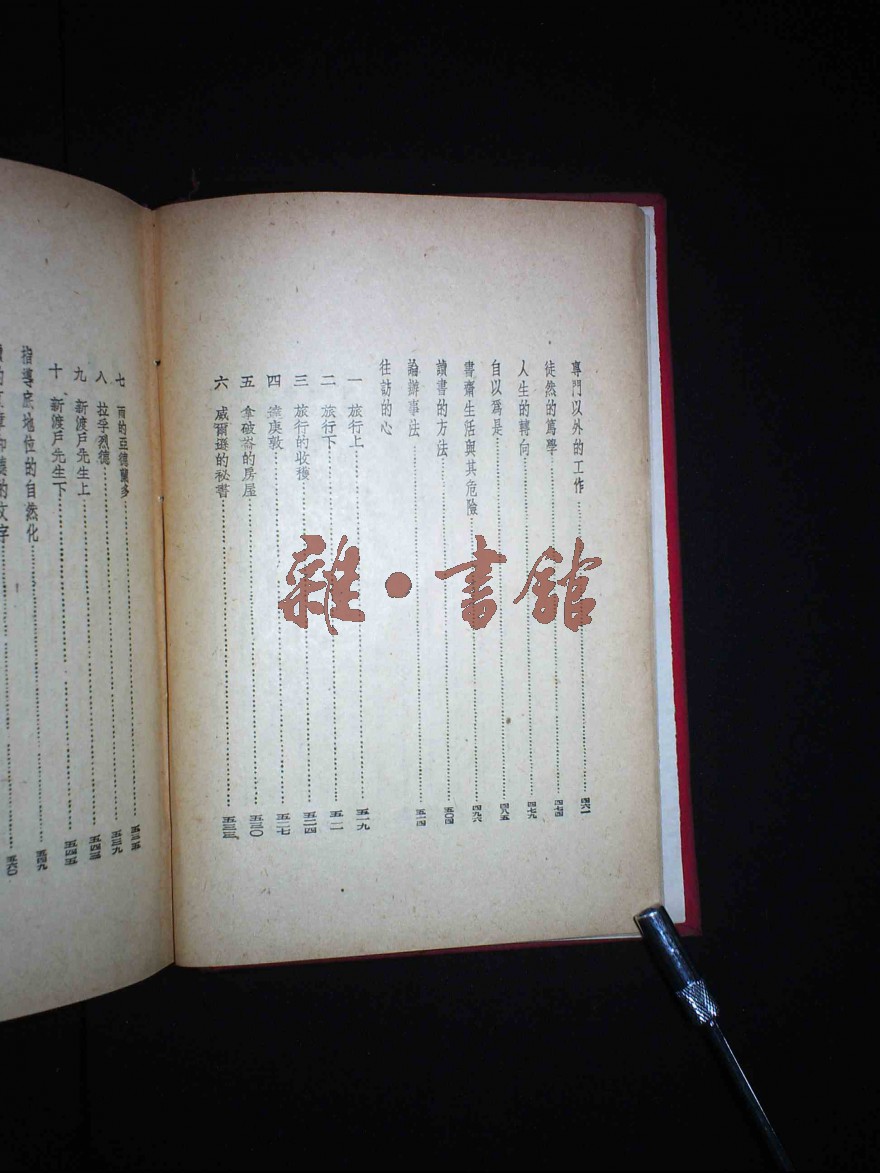 專門以外的工作……四六一
徒然的篤學……四七四
人生的轉向……四七九
自以爲是……四八五
書齋生活與其危險……四九六
讀書的方法……五〇四
論辦事法……五一四
往訪的心
一 旅行上……五一九
二 旅行下……五二一
三 旅行的收穫……五二四
四 達庚敦……五二七
五 拿破崙的房屋……五三〇
六 威爾遜的秘書……五三三
七 雨的亞德蘭多……五三五
八 拉孚烈德……五三九
九 新渡戶先生上……五四三
十 新渡戶先生下……五四五
指導底地位的自然化……五四九
的文章和聽的文字……五六〇
雜·書館